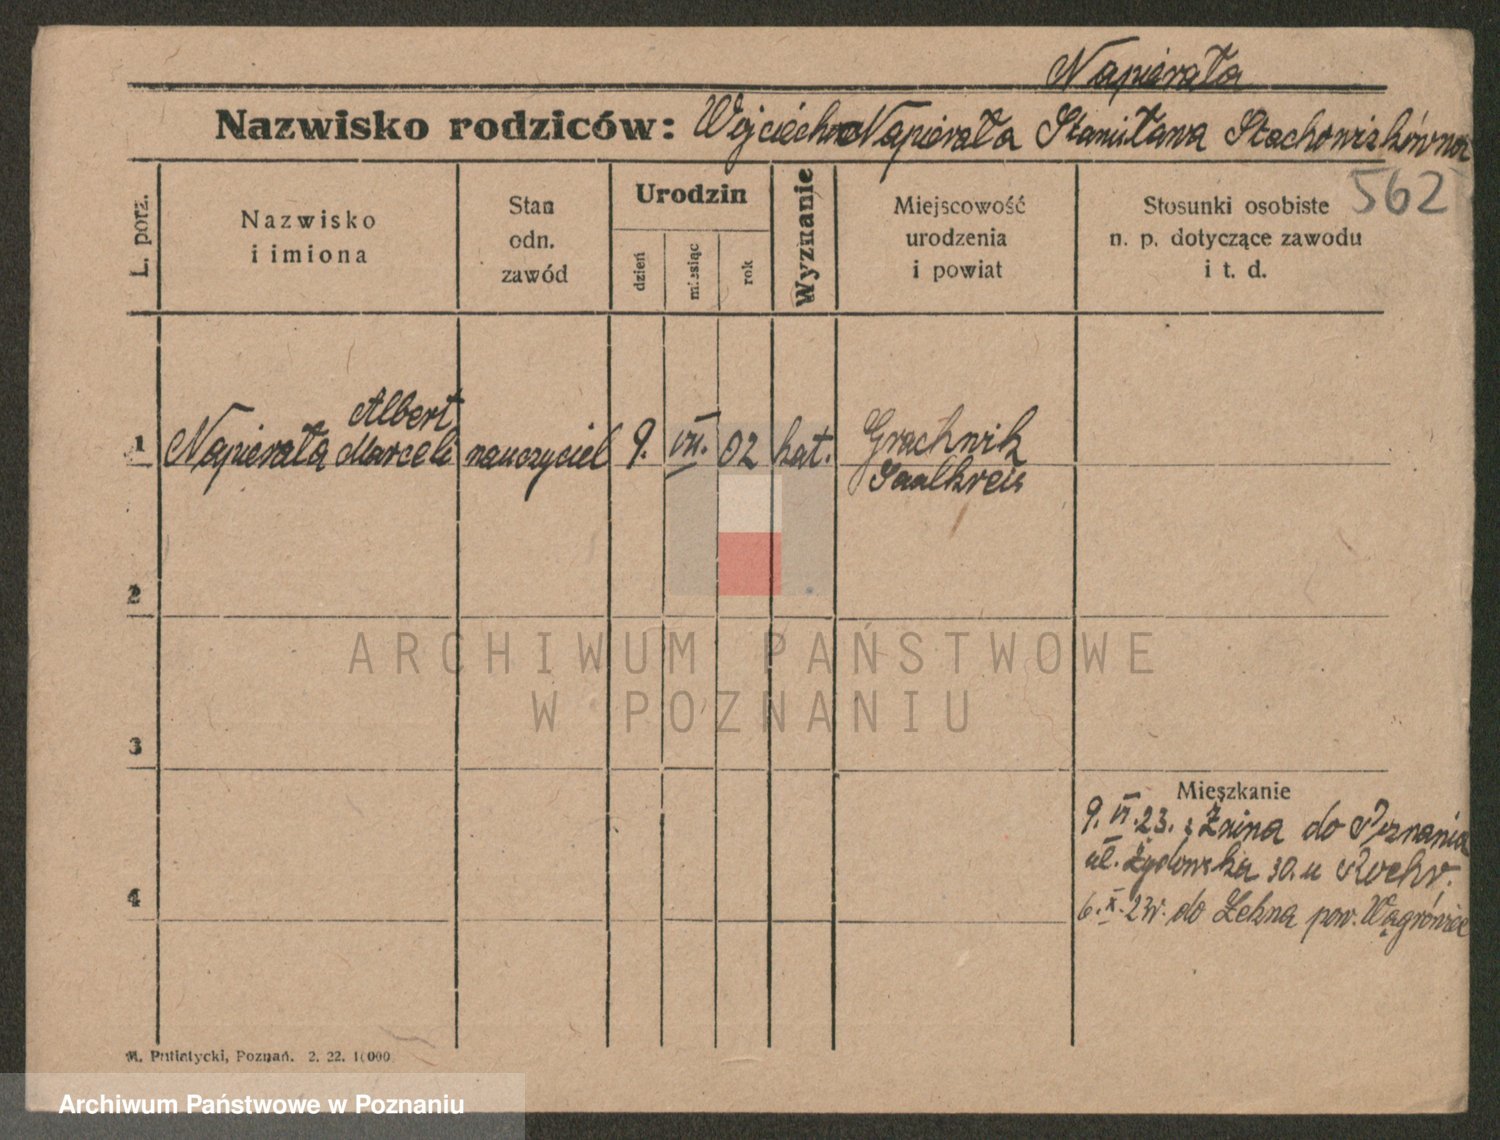 Napierała
Nazwisko rodziców: Wojciech Napierała Stanisława Stachowiakówna
562
L. porz.
Nazwisko
i imiona
Stan
odn.
zawód
Urodzin
dzień
miesiąc
rok
Wyznanie
Miejscowość
urodzenia
i powiat
Stosunki osobiste
n. p. dotyczące zawodu
i t. d.
Albert
1 Napierała Marceli nauczyciel 9. VII. 02 kat. Grachwih
Saalkreis
2
ARCHIWUM PAŃSTWOWE
W POZNANIU
3
Mieszkanie
9. VI. 23. z Żnina do Poznania
ul. Żydowska 30. u
4
6. X. 23r. do pow. Wągrówiec
M. Putiatycki, Poznań. 2. 22. 10000
Archiwum Państwowe w Poznaniu